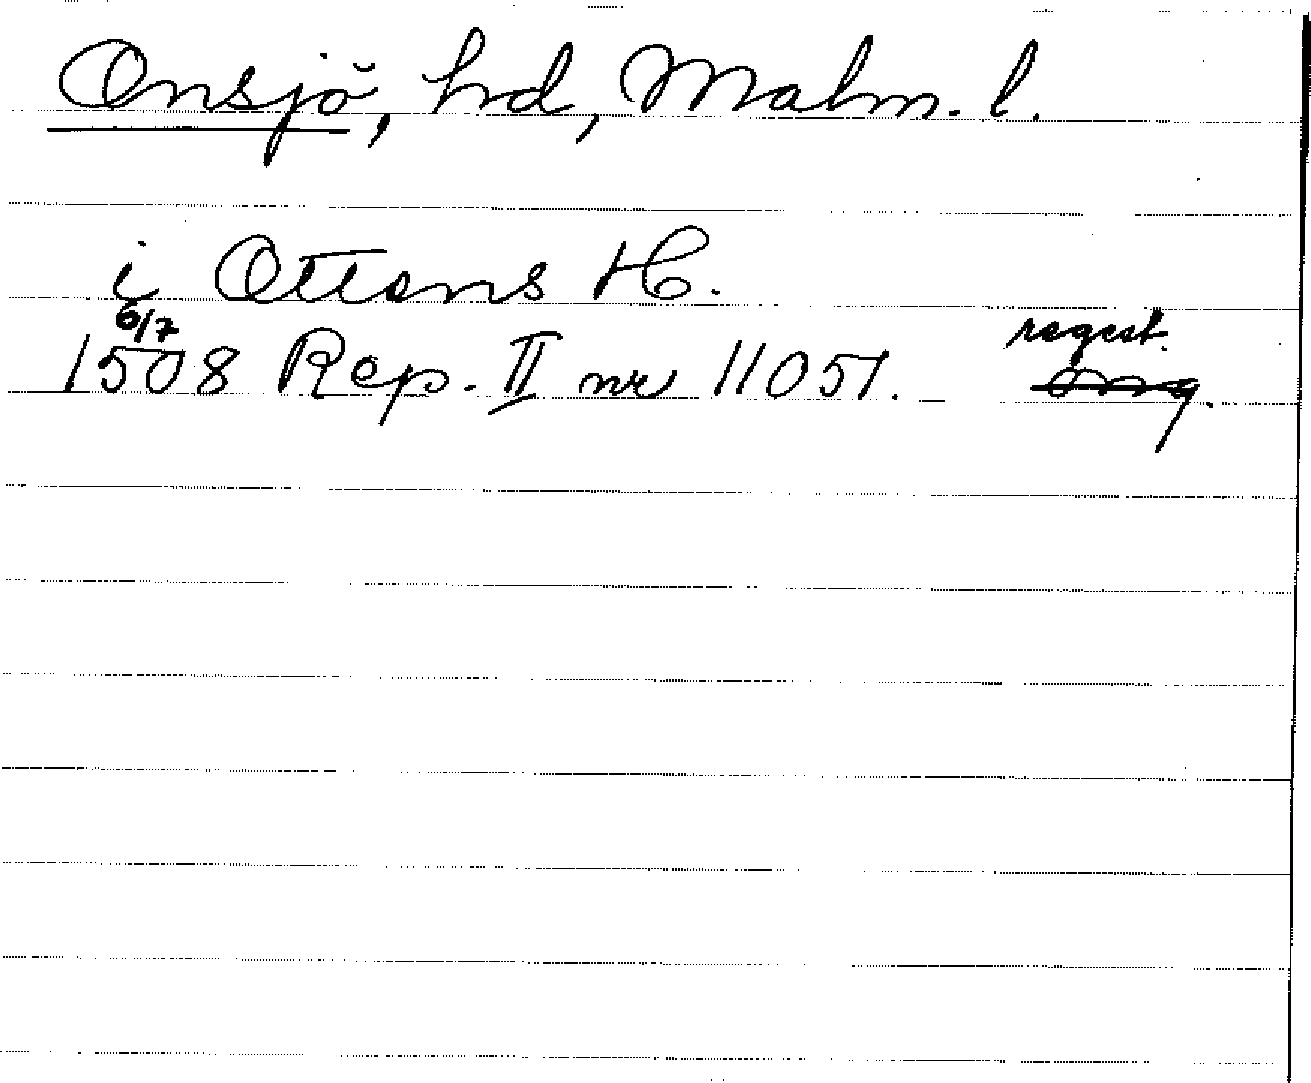 Onsjö, hd, Malm. l.
i Ottens H.
6/7
1508 Rep. II nr 11051. _ regest.
omg.